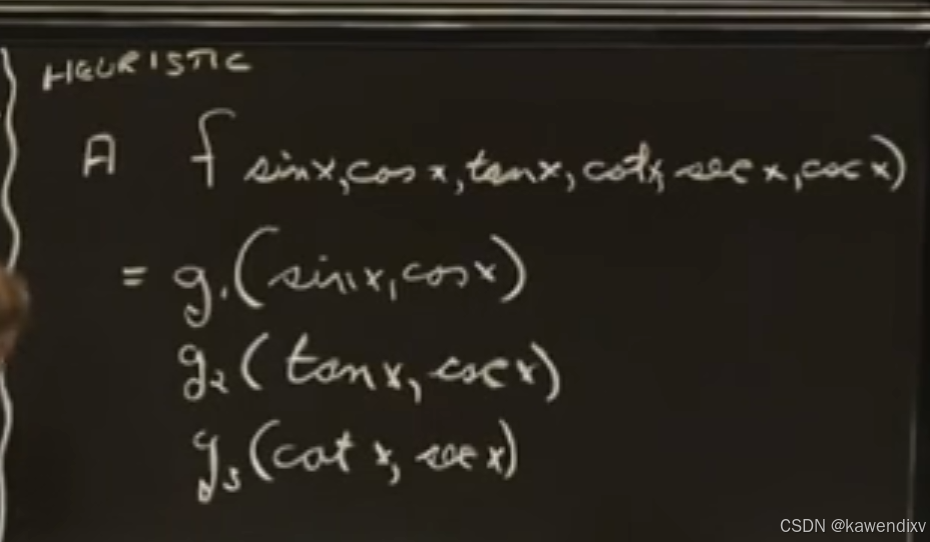 HEURISTIC
A f sinx,cosx,tanx,cotx,secx,cscx)
= g₁(sinx,cosx)
g₂(tanx,cscx)
g₃(cotx,secx)
CSDN @kawendixv